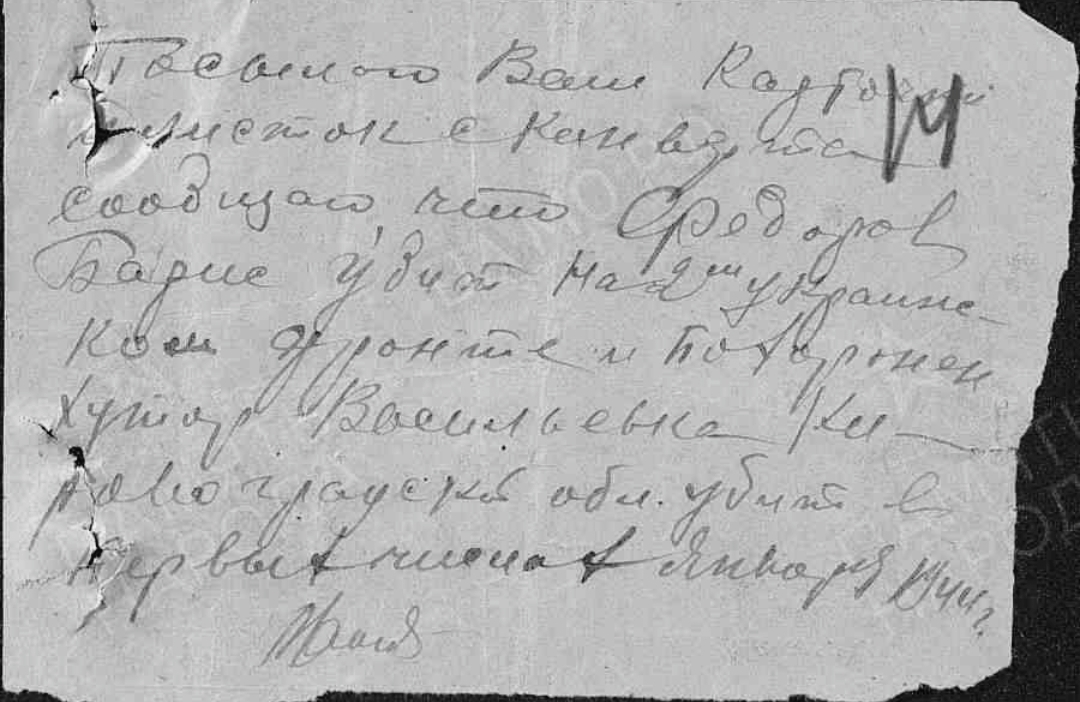 Посылаю Вам Кадровый
листок с Конверта
сообщаю что Федоров
Борис убит на 2ом украинс-
ком фронте и похоронен
хутор Васильевка Ки-
ровоградской обл. убит в
первых числах января 1944г.